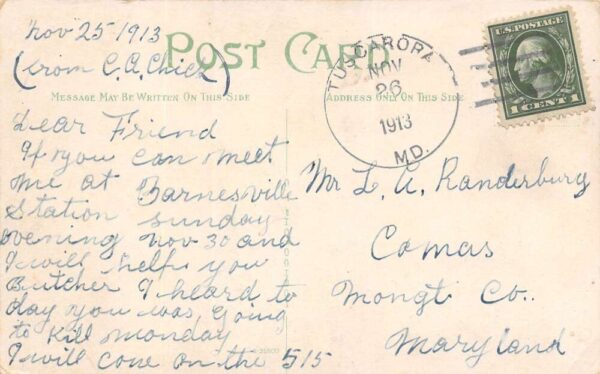 Nov 25 1913
(from C. A. Chick)
POST CARD
MESSAGE MAY BE WRITTEN ON THIS SIDE
ADDRESS ONLY ON THIS SIDE
TUSCARORA
NOV
26
1913
MD.
U.S. POSTAGE
1 CENT 1
Dear Friend
If you can meet
me at Barnesville
Station sunday
evening nov 30 and
I will help you
Butcher I heard to
day you was, going
to Kill monday
I will come on the 515
Mr L. A. Randerburg
Comas
Mongt Co..
Maryland